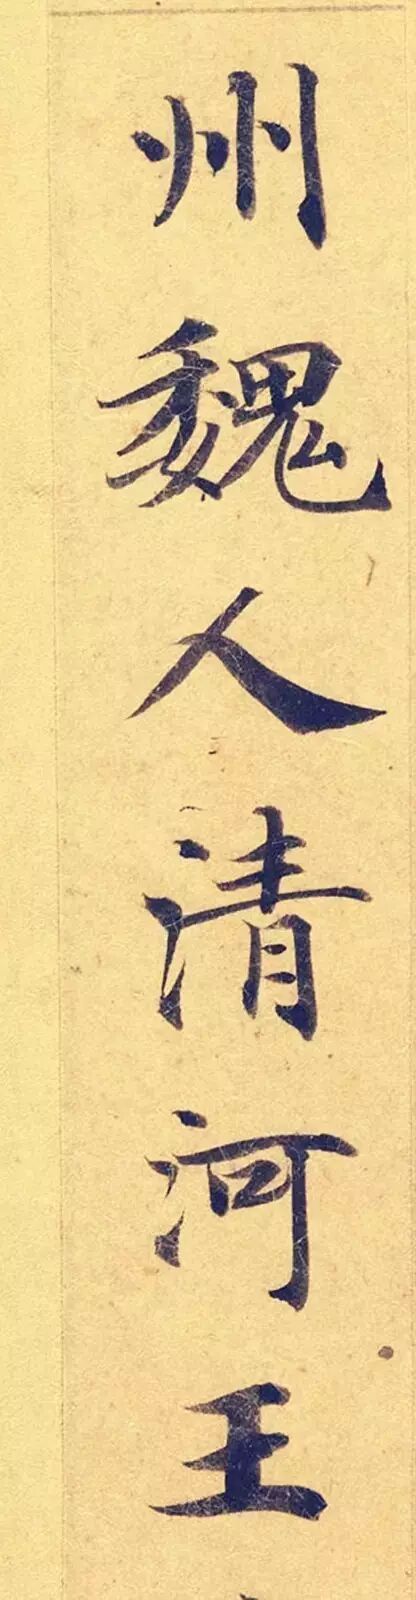 州魏人清河王